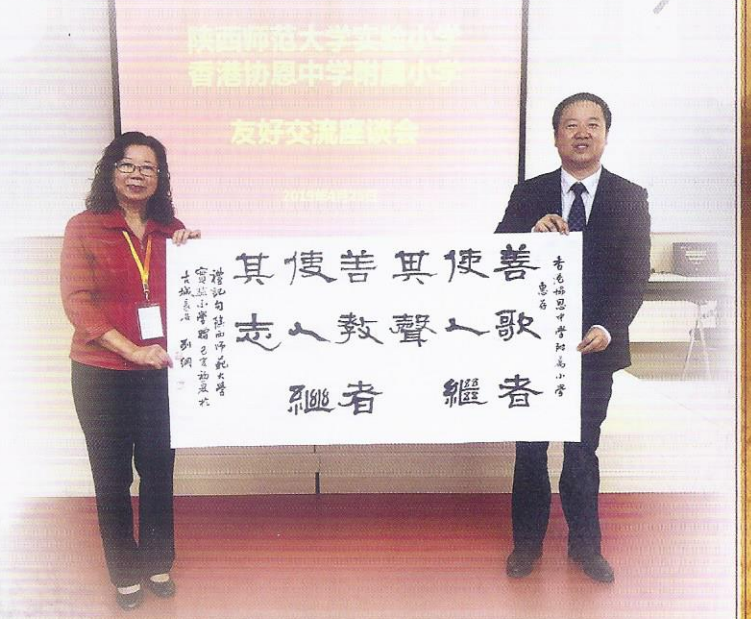 陕西师范大学实验小学
香港协恩中学附属小学
友好交流座谈会
香港協恩中學附属小学
惠存
善歌者
使人繼
其聲
善教者
使人繼
其志
禮記句陕西师範大學
實驗小學贈己亥初夏於
古城長安